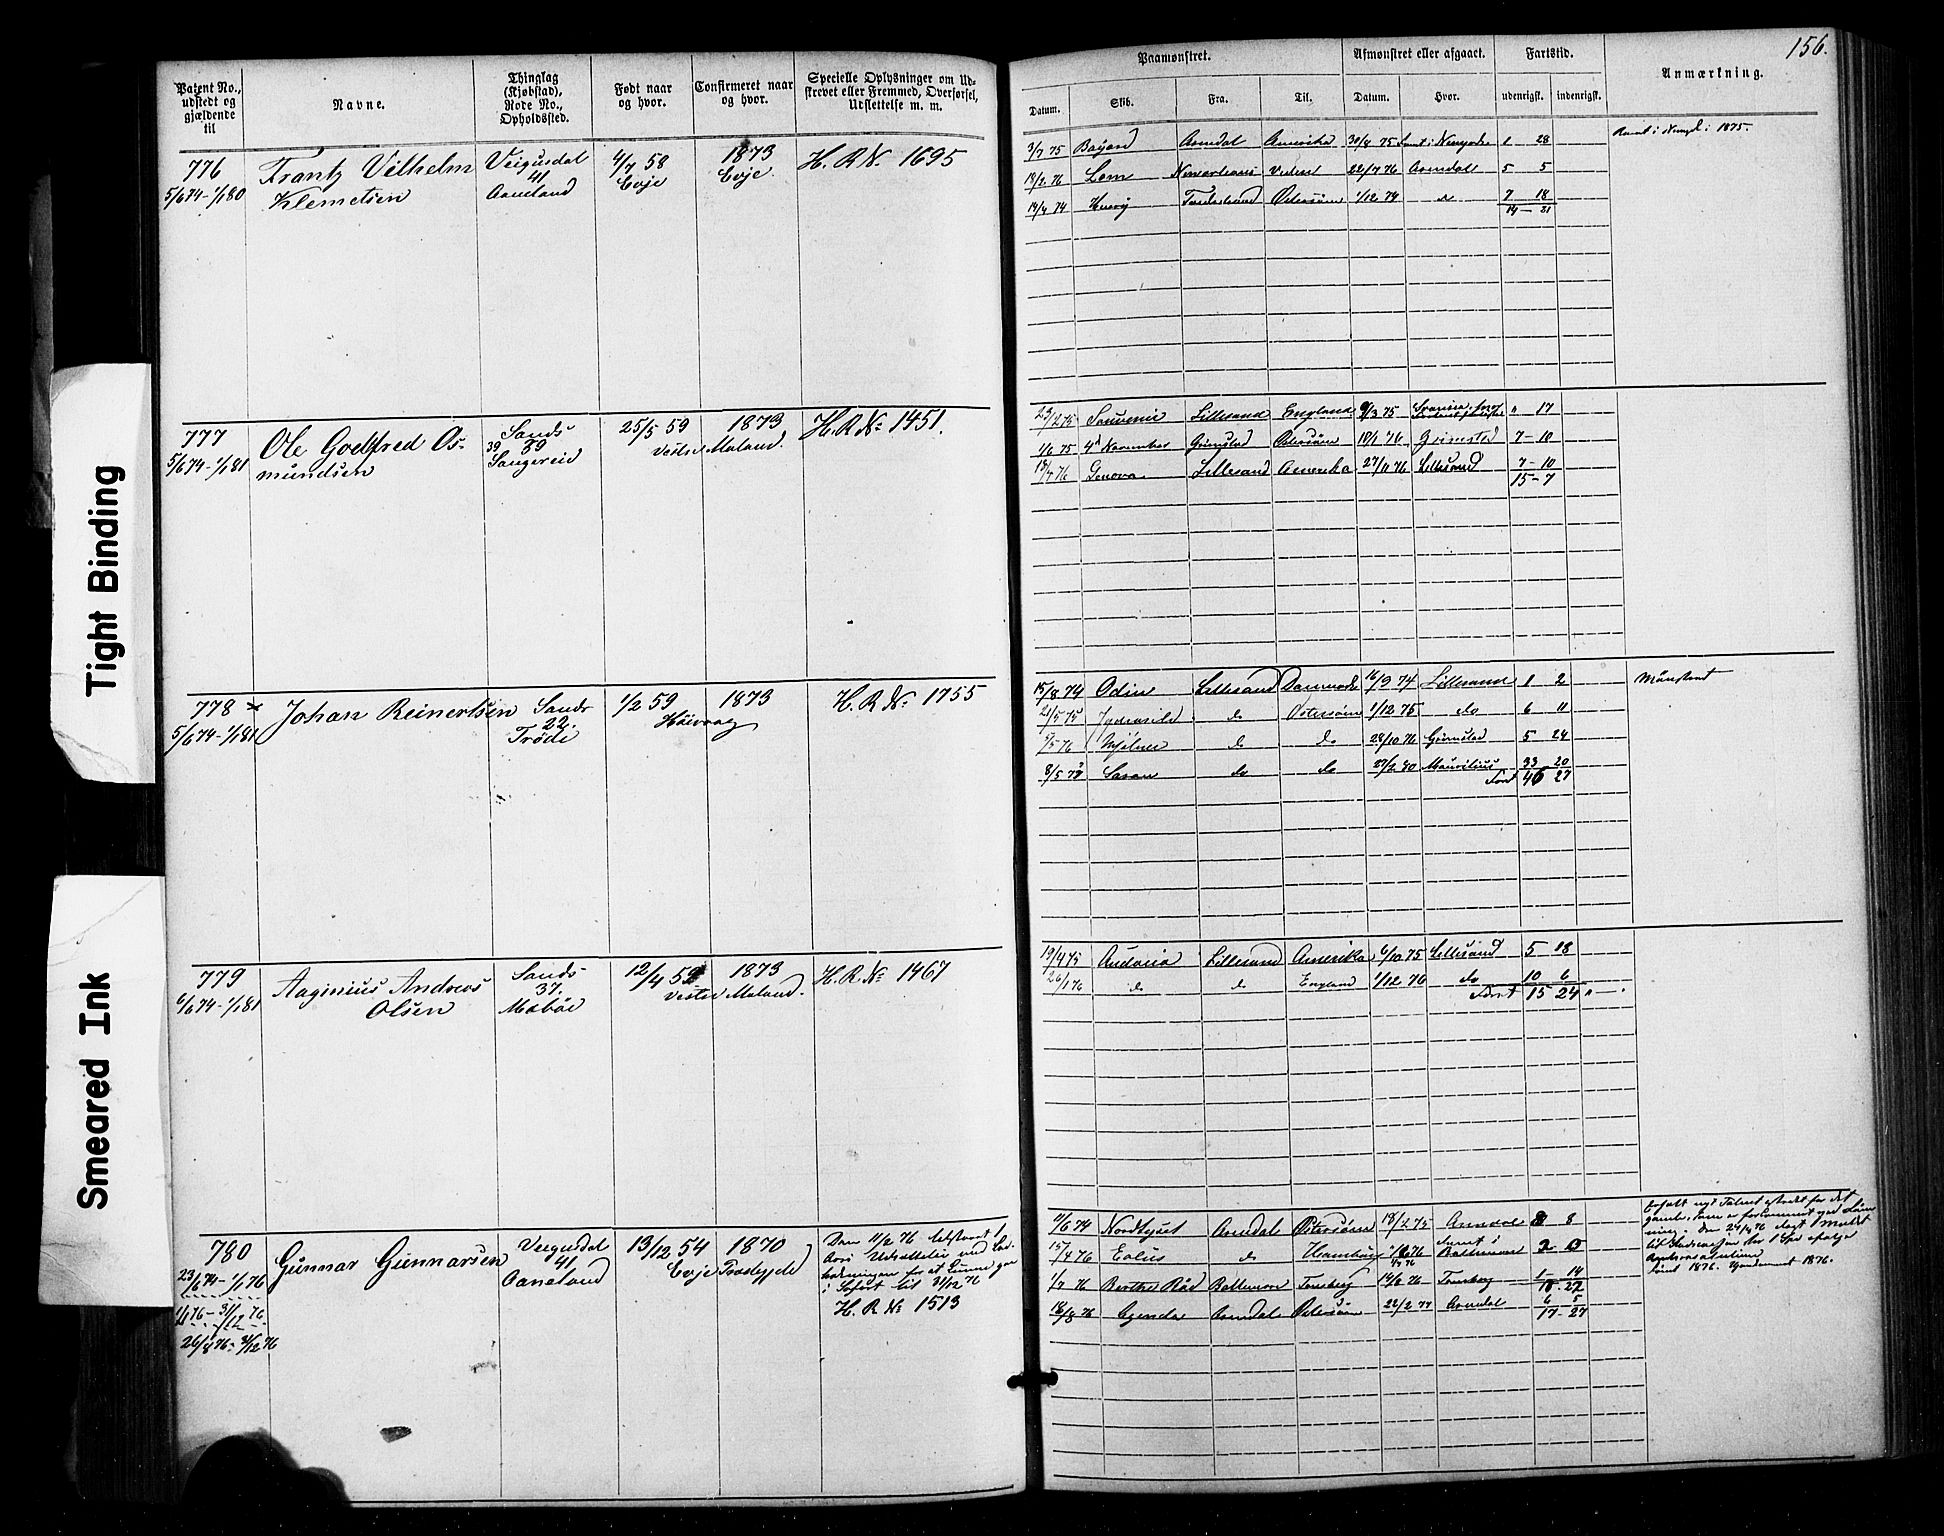 156.
Patent No.,
udstedt og
gjældende
til
Navne.
Thinglag
(Kjøbstad),
Rode No.,
Opholdssted.
Født naar
og hvor.
Confirmeret naar
og hvor.
Specielle Oplysninger om Ud-
skrevet eller Fremmed, Overførsel,
Udslettelse m. m.
Paamønstret.
Afmønstret eller afgaaet.
Fartstid.
Anmærkning.
Datum.
Skib.
Fra.
Til.
Datum.
Hvor.
udenrigsk.
indenrigsk.
776
5/6 74-1/1 80
Frantz Vilhelm
Klemetsen
Veigusdal
41
Aaneland
4/7 58
Evje
1873
Evje
H. R. №. 1695
3/7 75 Bayard Arendal Amerika 30/8 75 1 28
19/2 76 Lom 22/7 76 Arendal 5 5
14/4 74 Østersøen 1/12 74 do 7 18
14 - 21
777
5/6 74-1/1 81
Ole Godtfred Os-
mundsen
Sands
39 39
Sangereid
25/5 59
1873
Vestre Moland.
H. R. №: 1451.
23/2 75 Lillesand England 9/3 75 " 17
1/6 75 4de November Grimstad Østersøen 10/1 76 Grimstad 7-10
Genova Lillesand Amerika 27/11 76 Lillesand 7-10
15-7
778 ×
5/6 74-1/1 81
Johan Reinertsen
Sands
22.
Trøde
1/2 59
1873
Høivaag
H. R. №. 1755
15/8 74 Odin Lillesand Danmark 16/9 74 Lillesand 1 2 Mønstret
21/5 75 do Østersøen 1/12 75 do 6 11
5/5 76 Mjølner do do 28/10 76 Grimstad 5 24
Saran do do 27/2 80 Mauritius 33 20
Tont 46 27
779
6/6 74-1/1 81
Aaginius Andreas
Olsen
Sands
37.
Mæbøe
12/4 59
1873
Vestre Moland.
H. R. №: 1467
19/4 75 Lillesand Amerika 6/10 75 Lillesand 5 18
26/1 76 do do England 1/12 76 do 10 6
15 24 " "
780
23/6 74-1/1 76
1/1 76-31/12 76
26/8 76-31/12 76
Gunnar Gunnarsen
Veigusdal
41
Aaneland
13/12 54
Evje
1870
Froshygde
Den 11/2 76 tilstaaet
i Søfart til 31/12 76
H. R. № 1513
11/6 74 Nordlyset Arendal Østersøen 18/2 75 Arendal 8 8
15/4 76 Eolus do Hamburg Baltimore 2 0
1/7 76 Berthe Rød Baltimore Tønsberg 14/8 76 Tønsberg 1 14
26/8 76 Agenda Arendal Østersøen 22/2 77 Arendal 6 5
17-27
Tight Binding
Smeared Ink